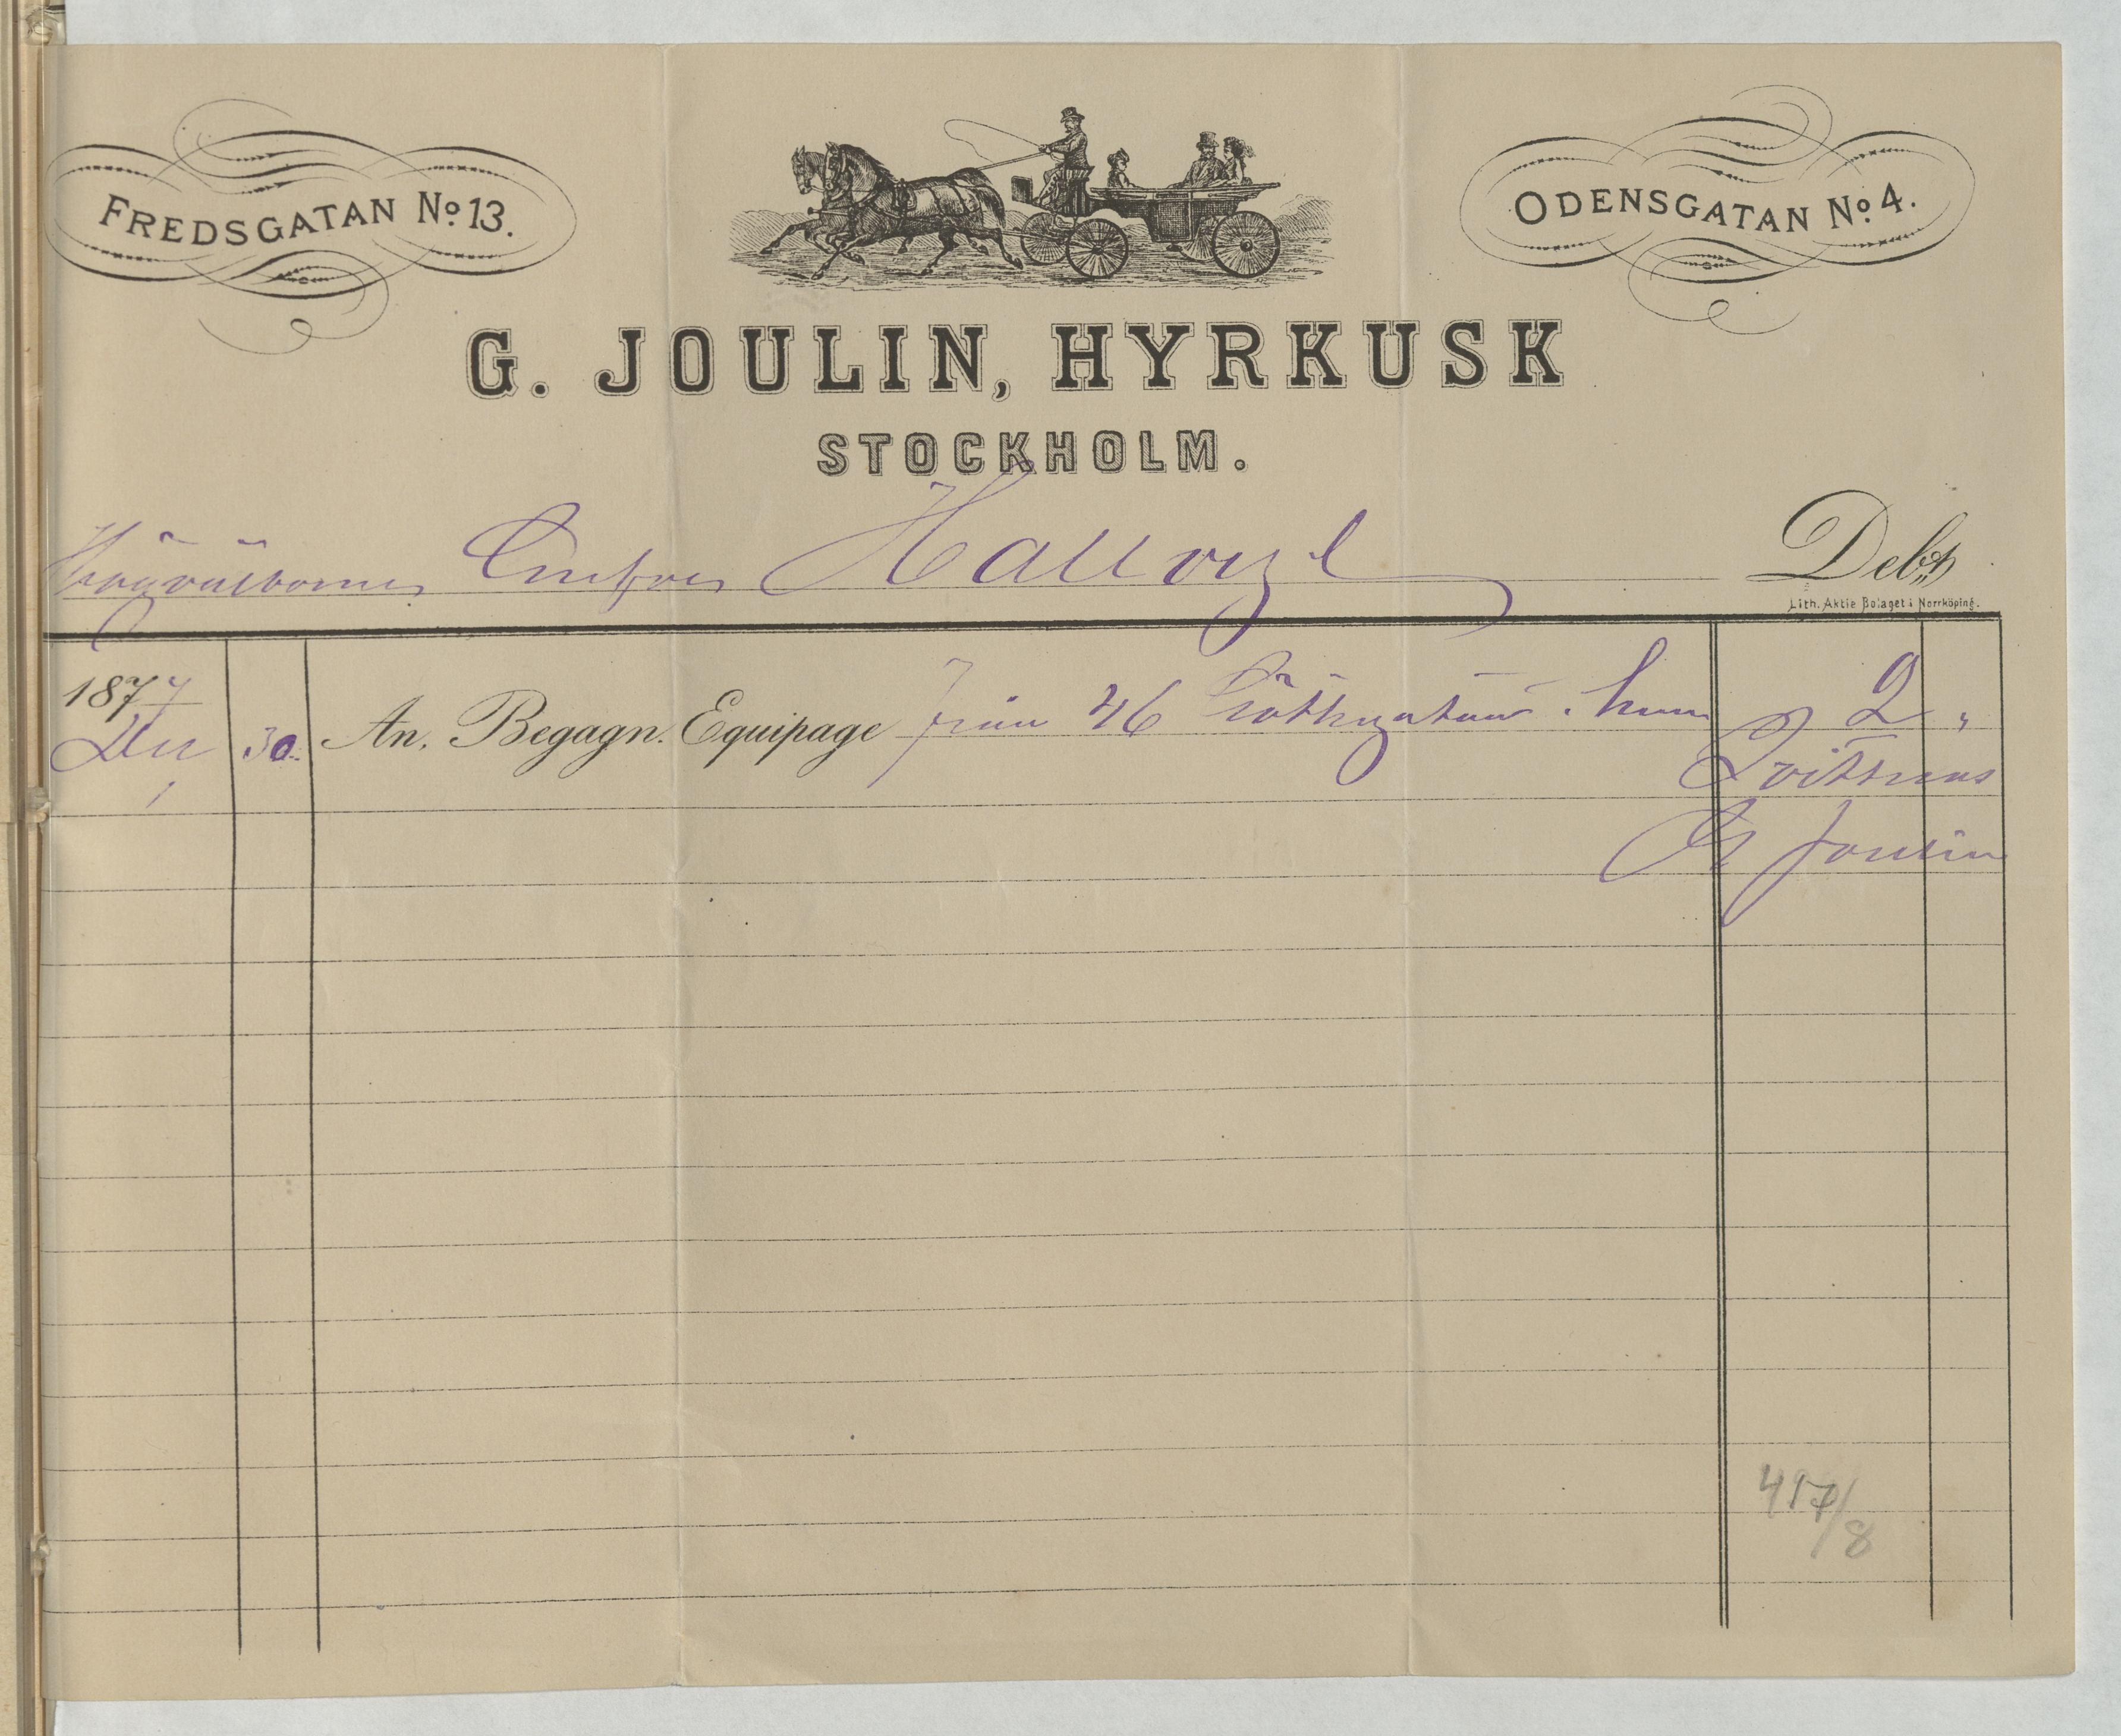 FREDSGATAN No 13.
ODENSGATAN No 4.
G. JOULIN, HYRKUSK
STOCKHOLM.
Högvälborne Hallwyl Debet
Lith. Aktie Bolaget i Norrköping.
1877
Dec 30. An, Begagn. Equipage från 46 hem 2 "
Qvitteras
G Joulin
417/8